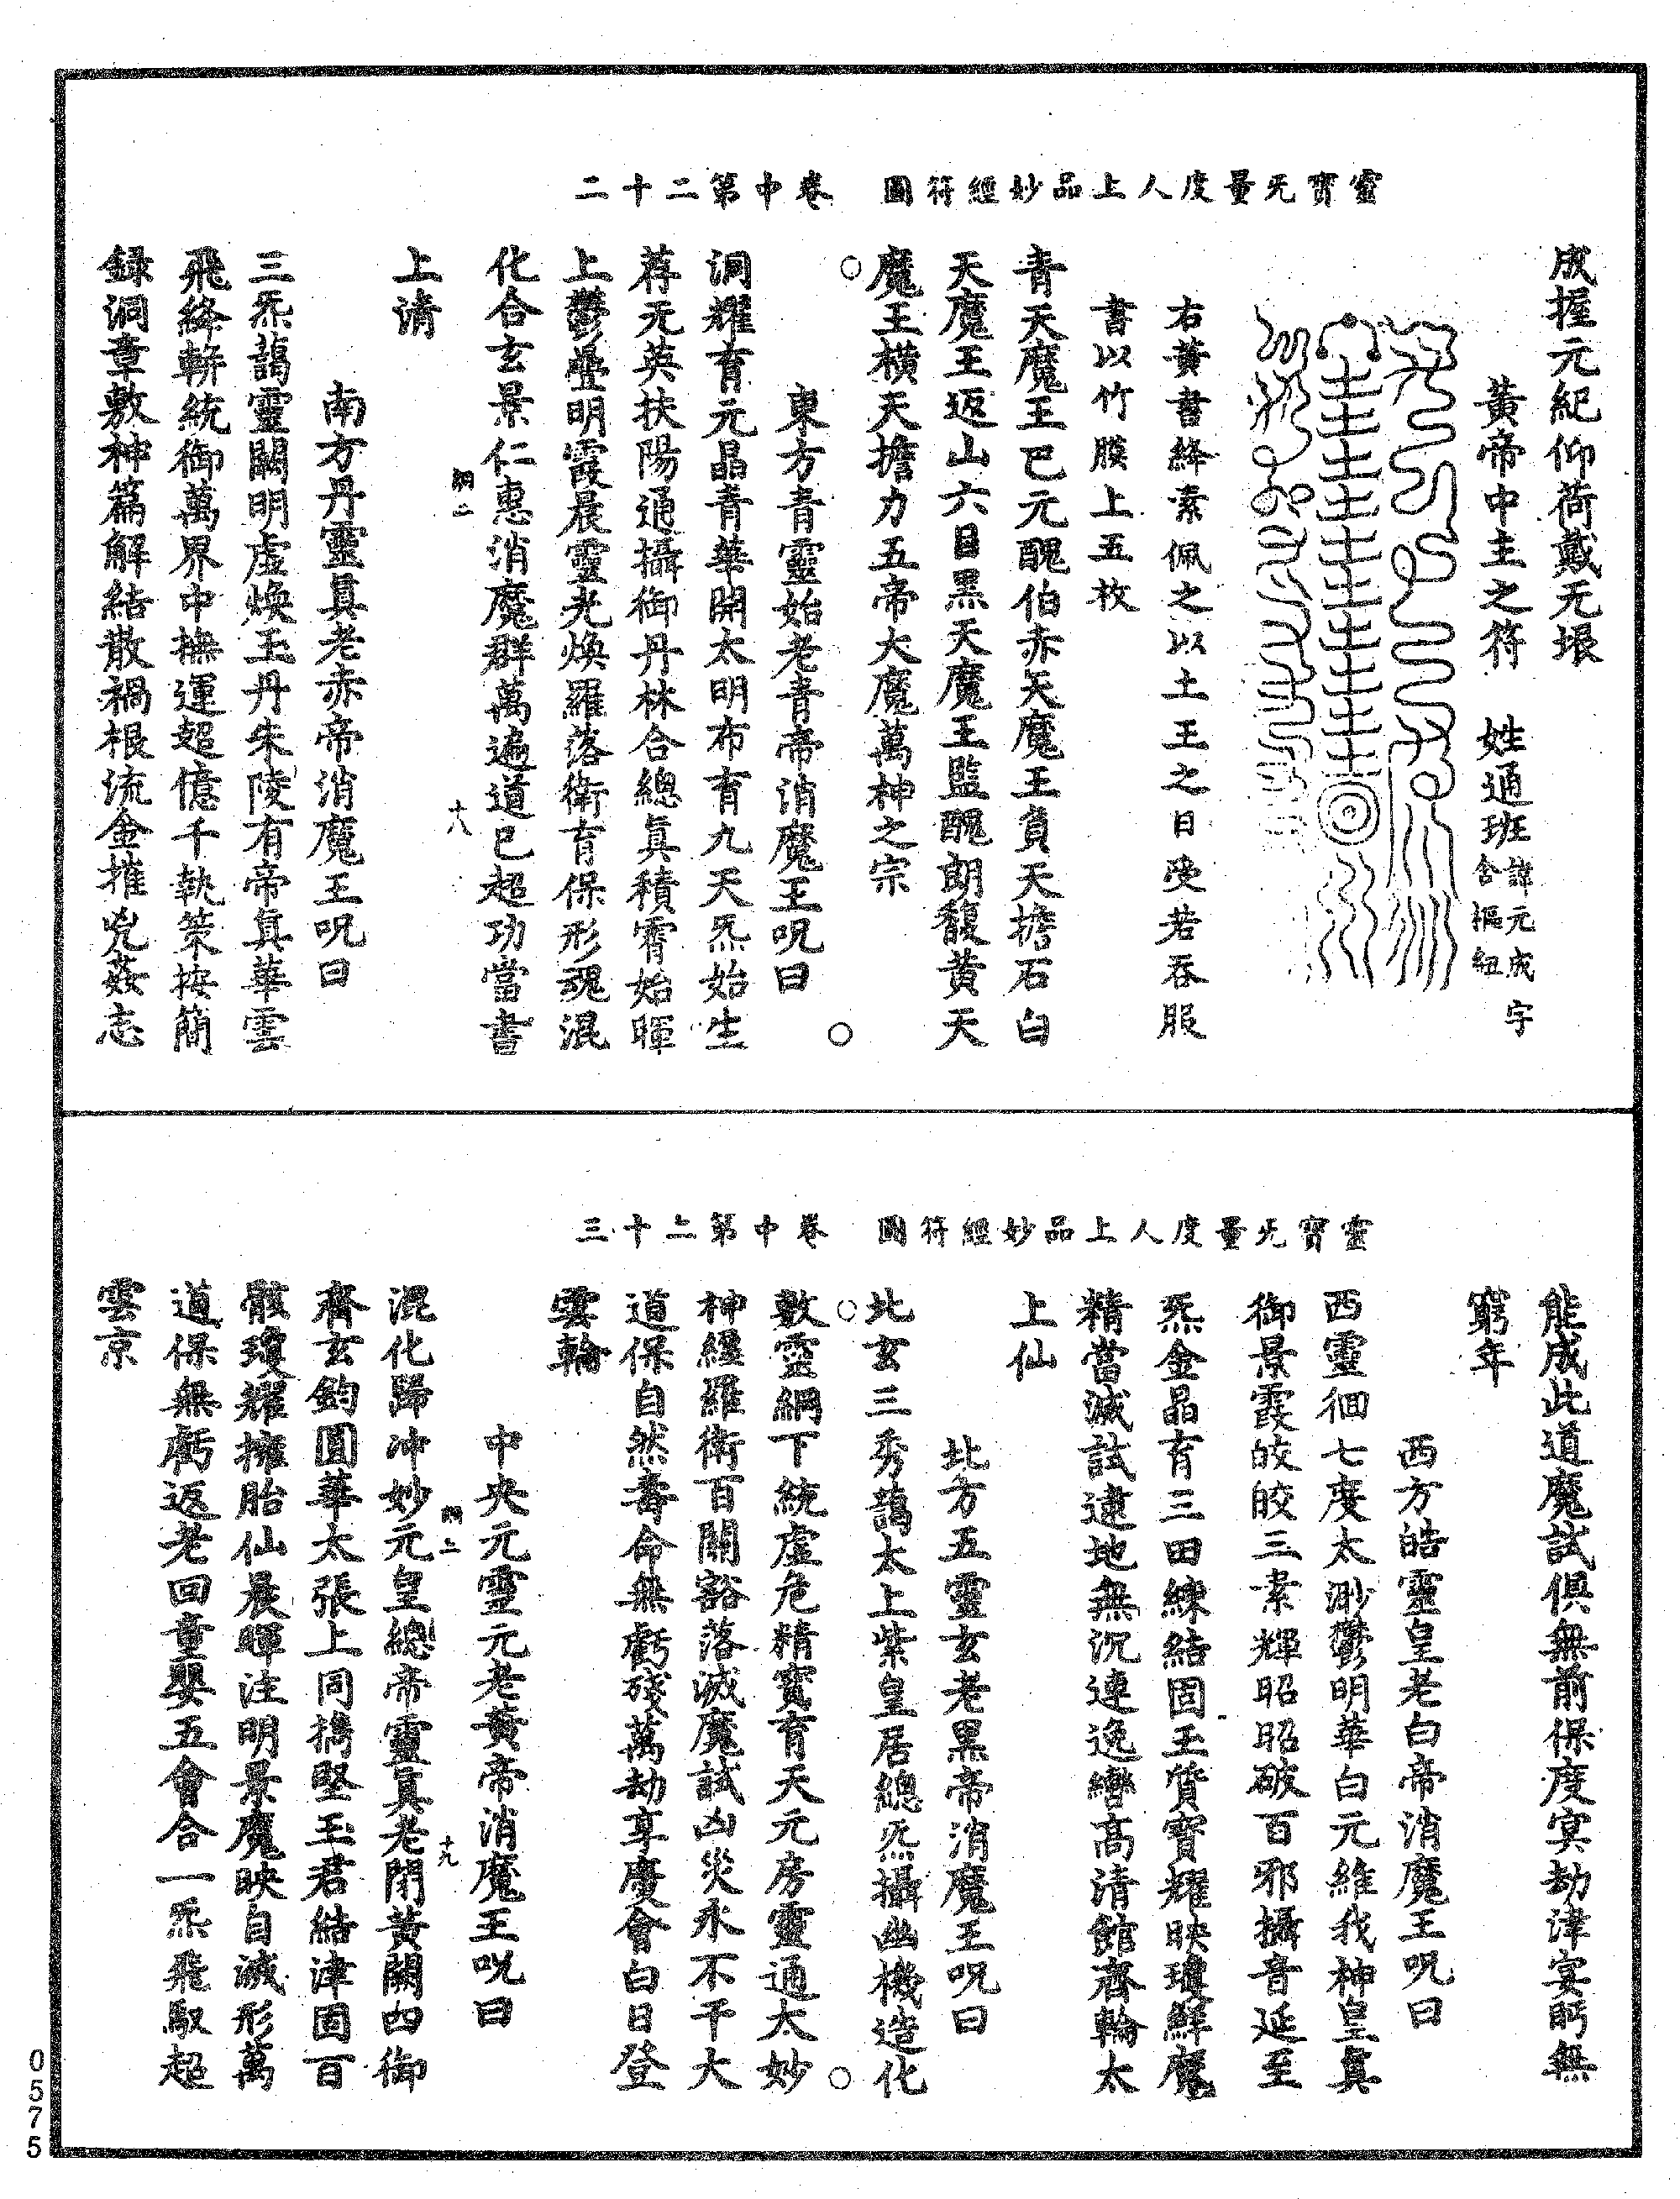 靈寶无量度人上品妙經符圖　卷中第二十二
成握元紀仰荷戴无垠
黃帝中主之符　姓通班諱元成字含樞紐
右黃書絳素佩之以土王之日受若吞服
書以竹膜上五枚
青天魔王巴元醜伯赤天魔王負天擔石白
天魔王返山六目黑天魔王監醜朗馥黃天
魔王橫天擔力五帝大魔萬神之宗
○　○
東方青靈始老青帝消魔王呪曰
洞耀育元晶青華開太明布育九天炁始生
荐元英扶陽通攝御丹林合總眞積霄始暉
上鬱疊明霞晨靈光煥羅落衛育保形魂混
化合玄景仁惠消魔群萬遍道已超功當書
十八
上清
南方丹靈眞老赤帝消魔王呪曰
三炁藹靈關明虛煥玉丹朱陵有帝眞華雲
飛絳軿統御萬界中撫運超億千執策按簡
録洞章敷神篇解結散禍根流金摧兇姦志
靈寶无量度人上品妙經符圖　卷中第二十三
能成此道魔試俱無前保度冥劫津宴眄無
窮年
西方皓靈皇老白帝消魔王呪曰
西靈徊七度太渺鬱明華白元維我神皇眞
御景霞皎皎三素輝昭昭破百邪攝音延至
炁金晶育三田練結固玉質寶耀映瓊鮮魔
精當滅試遠地無沉連逸轡高清館齊輪太
上仙
北方五靈玄老黑帝消魔王呪曰
北玄三秀藹太上紫皇居總炁攝幽機造化
○　○
敷靈綱下統虛危精寳育天元房靈通太妙
神經羅衛百關豁落滅魔試凶災永不干大
道保自然壽命無虧殘萬劫享慶會白日登
雲輪
中央元靈元老黃帝消魔王呪曰
十九
混化歸冲妙元皇總帝靈眞老閉黃關四御
齊玄鈞圓華太張上同擕堅玉君結津固百
骸瓊耀擁胎仙晨暉注明景魔映自滅形萬
道保無虧返老回童嬰五會合一炁飛馭超
雲京
0575